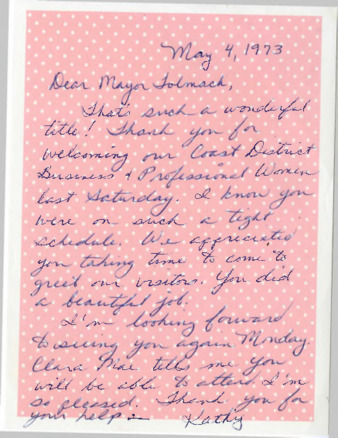 May 4, 1973
Dear Mayor Tolmach,
That's such a wonderful
title! Thank you for
welcoming our Coast District
Business & Professional Women
last Saturday. I know you
were on such a tight
schedule. We appreciated
you taking time to come to
greet our visitors. You did
a beautiful job.
I'm looking forward
to seeing you again Monday.
Clara Mae tells me you
will be able to attend I'm
so pleased. Thank you for
your help –
Kathy